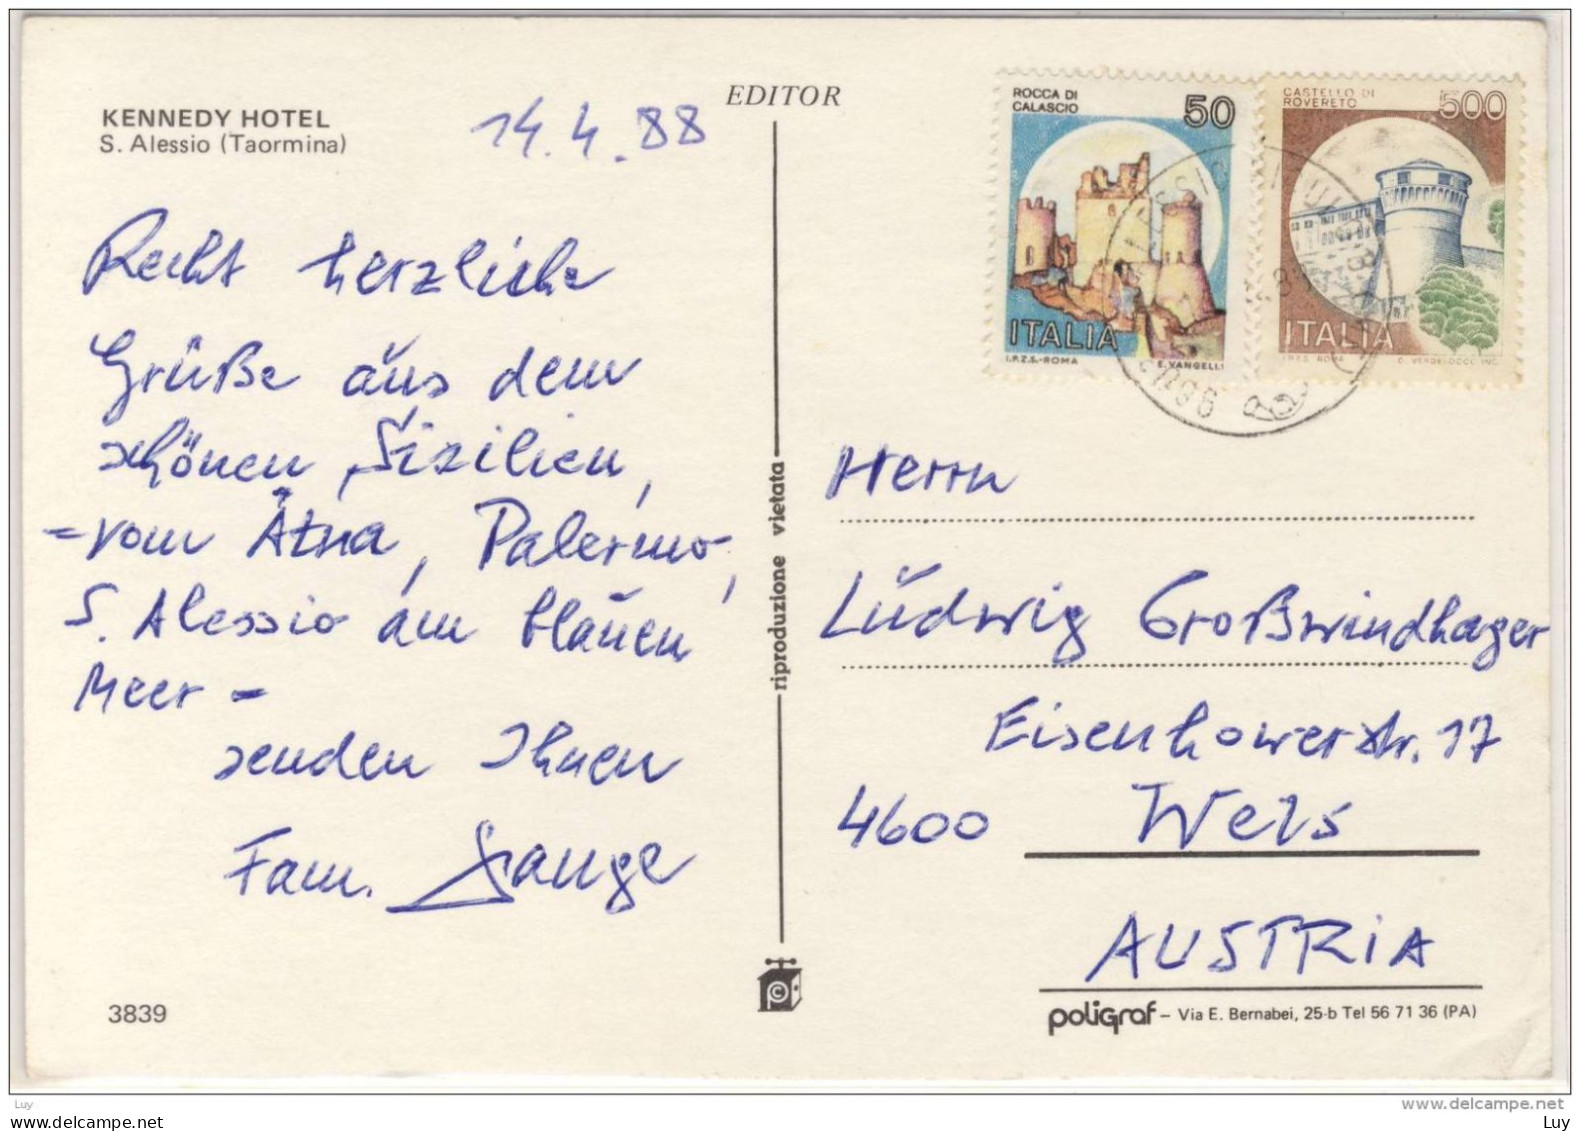 KENNEDY HOTEL
S. Alessio (Taormina)
14.4.88
Recht herzliche
Grüße aus dem
schönen Sizilien,
- vom Ätna, Palermo,
S. Alessio am blauen
Meer -
senden Ihnen
Fam.
3839
EDITOR
riproduzione vietata
ROCCA DI
CALASCIO
50
ITALIA
I.P.Z.S.-ROMA E. VANGELLI
CASTELLO DI
ROVERETO
500
ITALIA
I.P.Z.S. ROMA
Herrn
Ludwig Großwindhager
Eisenhowerstr. 17
4600 Wels
AUSTRIA
poligraf – Via E. Bernabei, 25-b Tel 56 71 36 (PA)
Luy
www.delcampe.net
www.delcampe.net
Luy